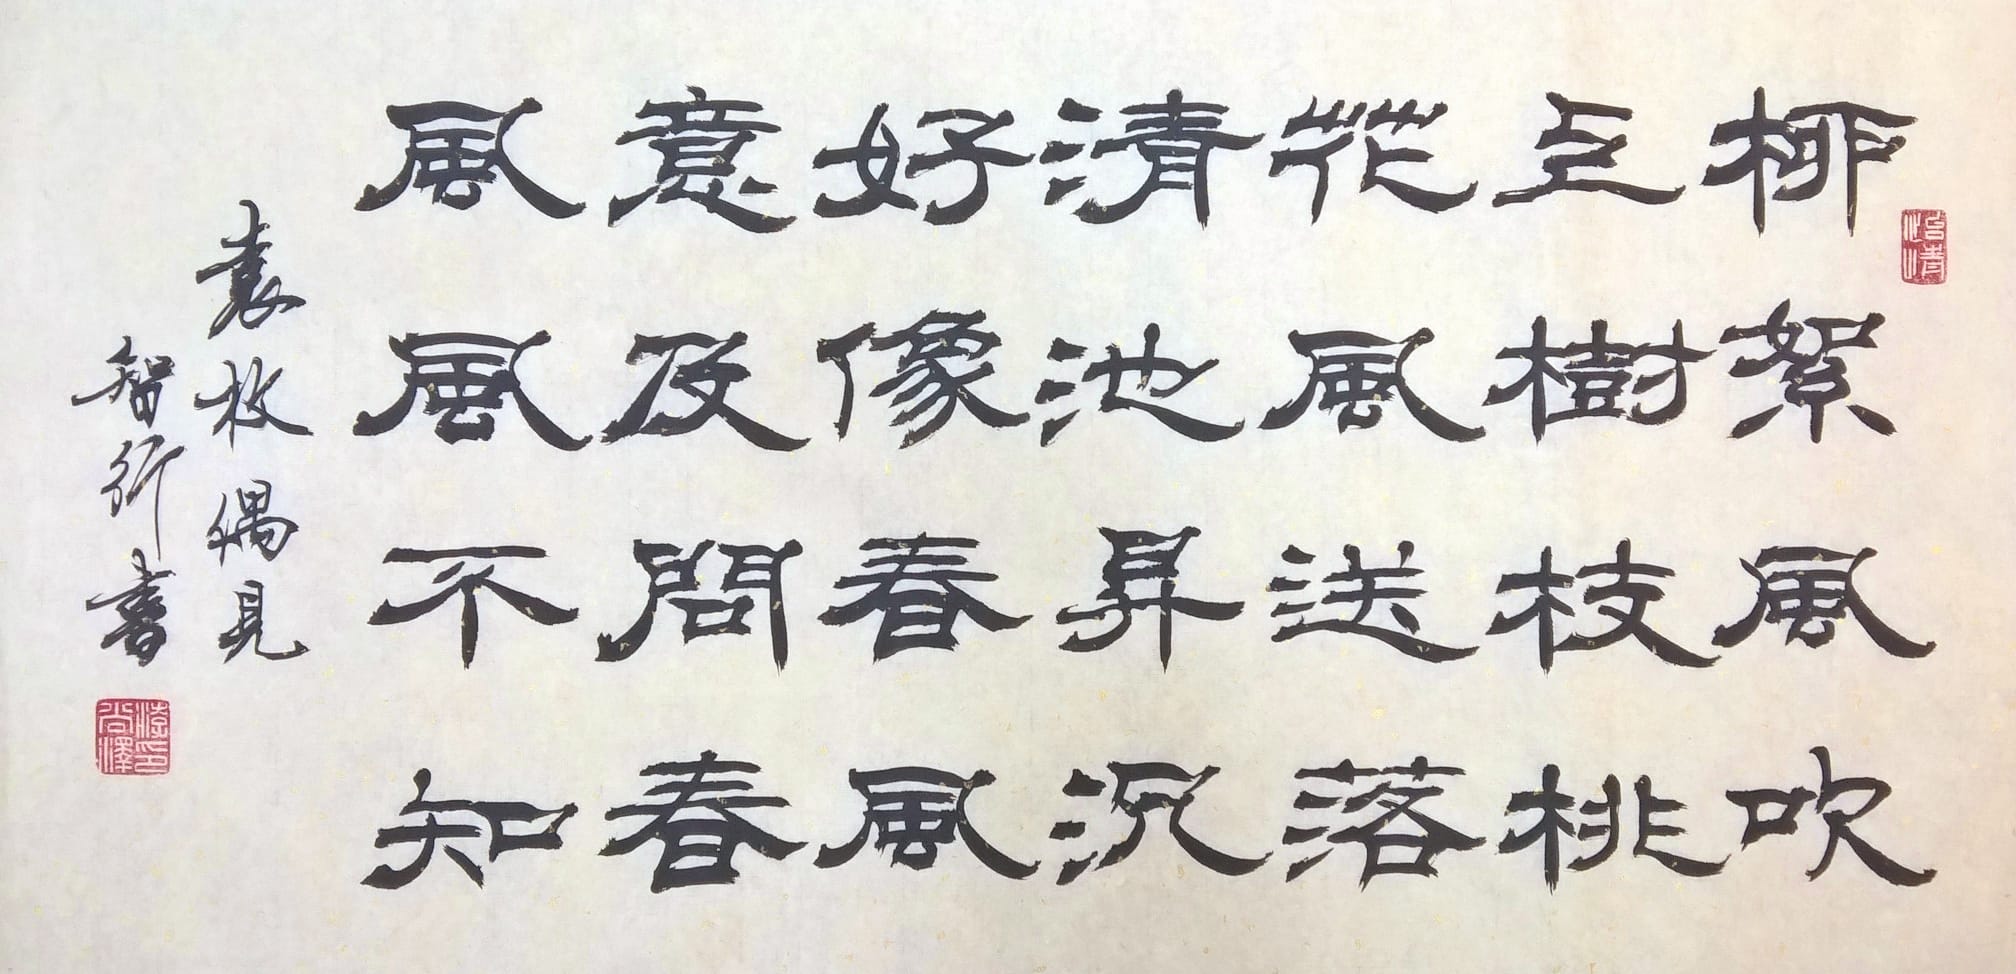 柳絮風吹
上樹枝桃
花風送落
清池昇沉
好像春風
意及問春
風風不知
袁枚偶見
智行書